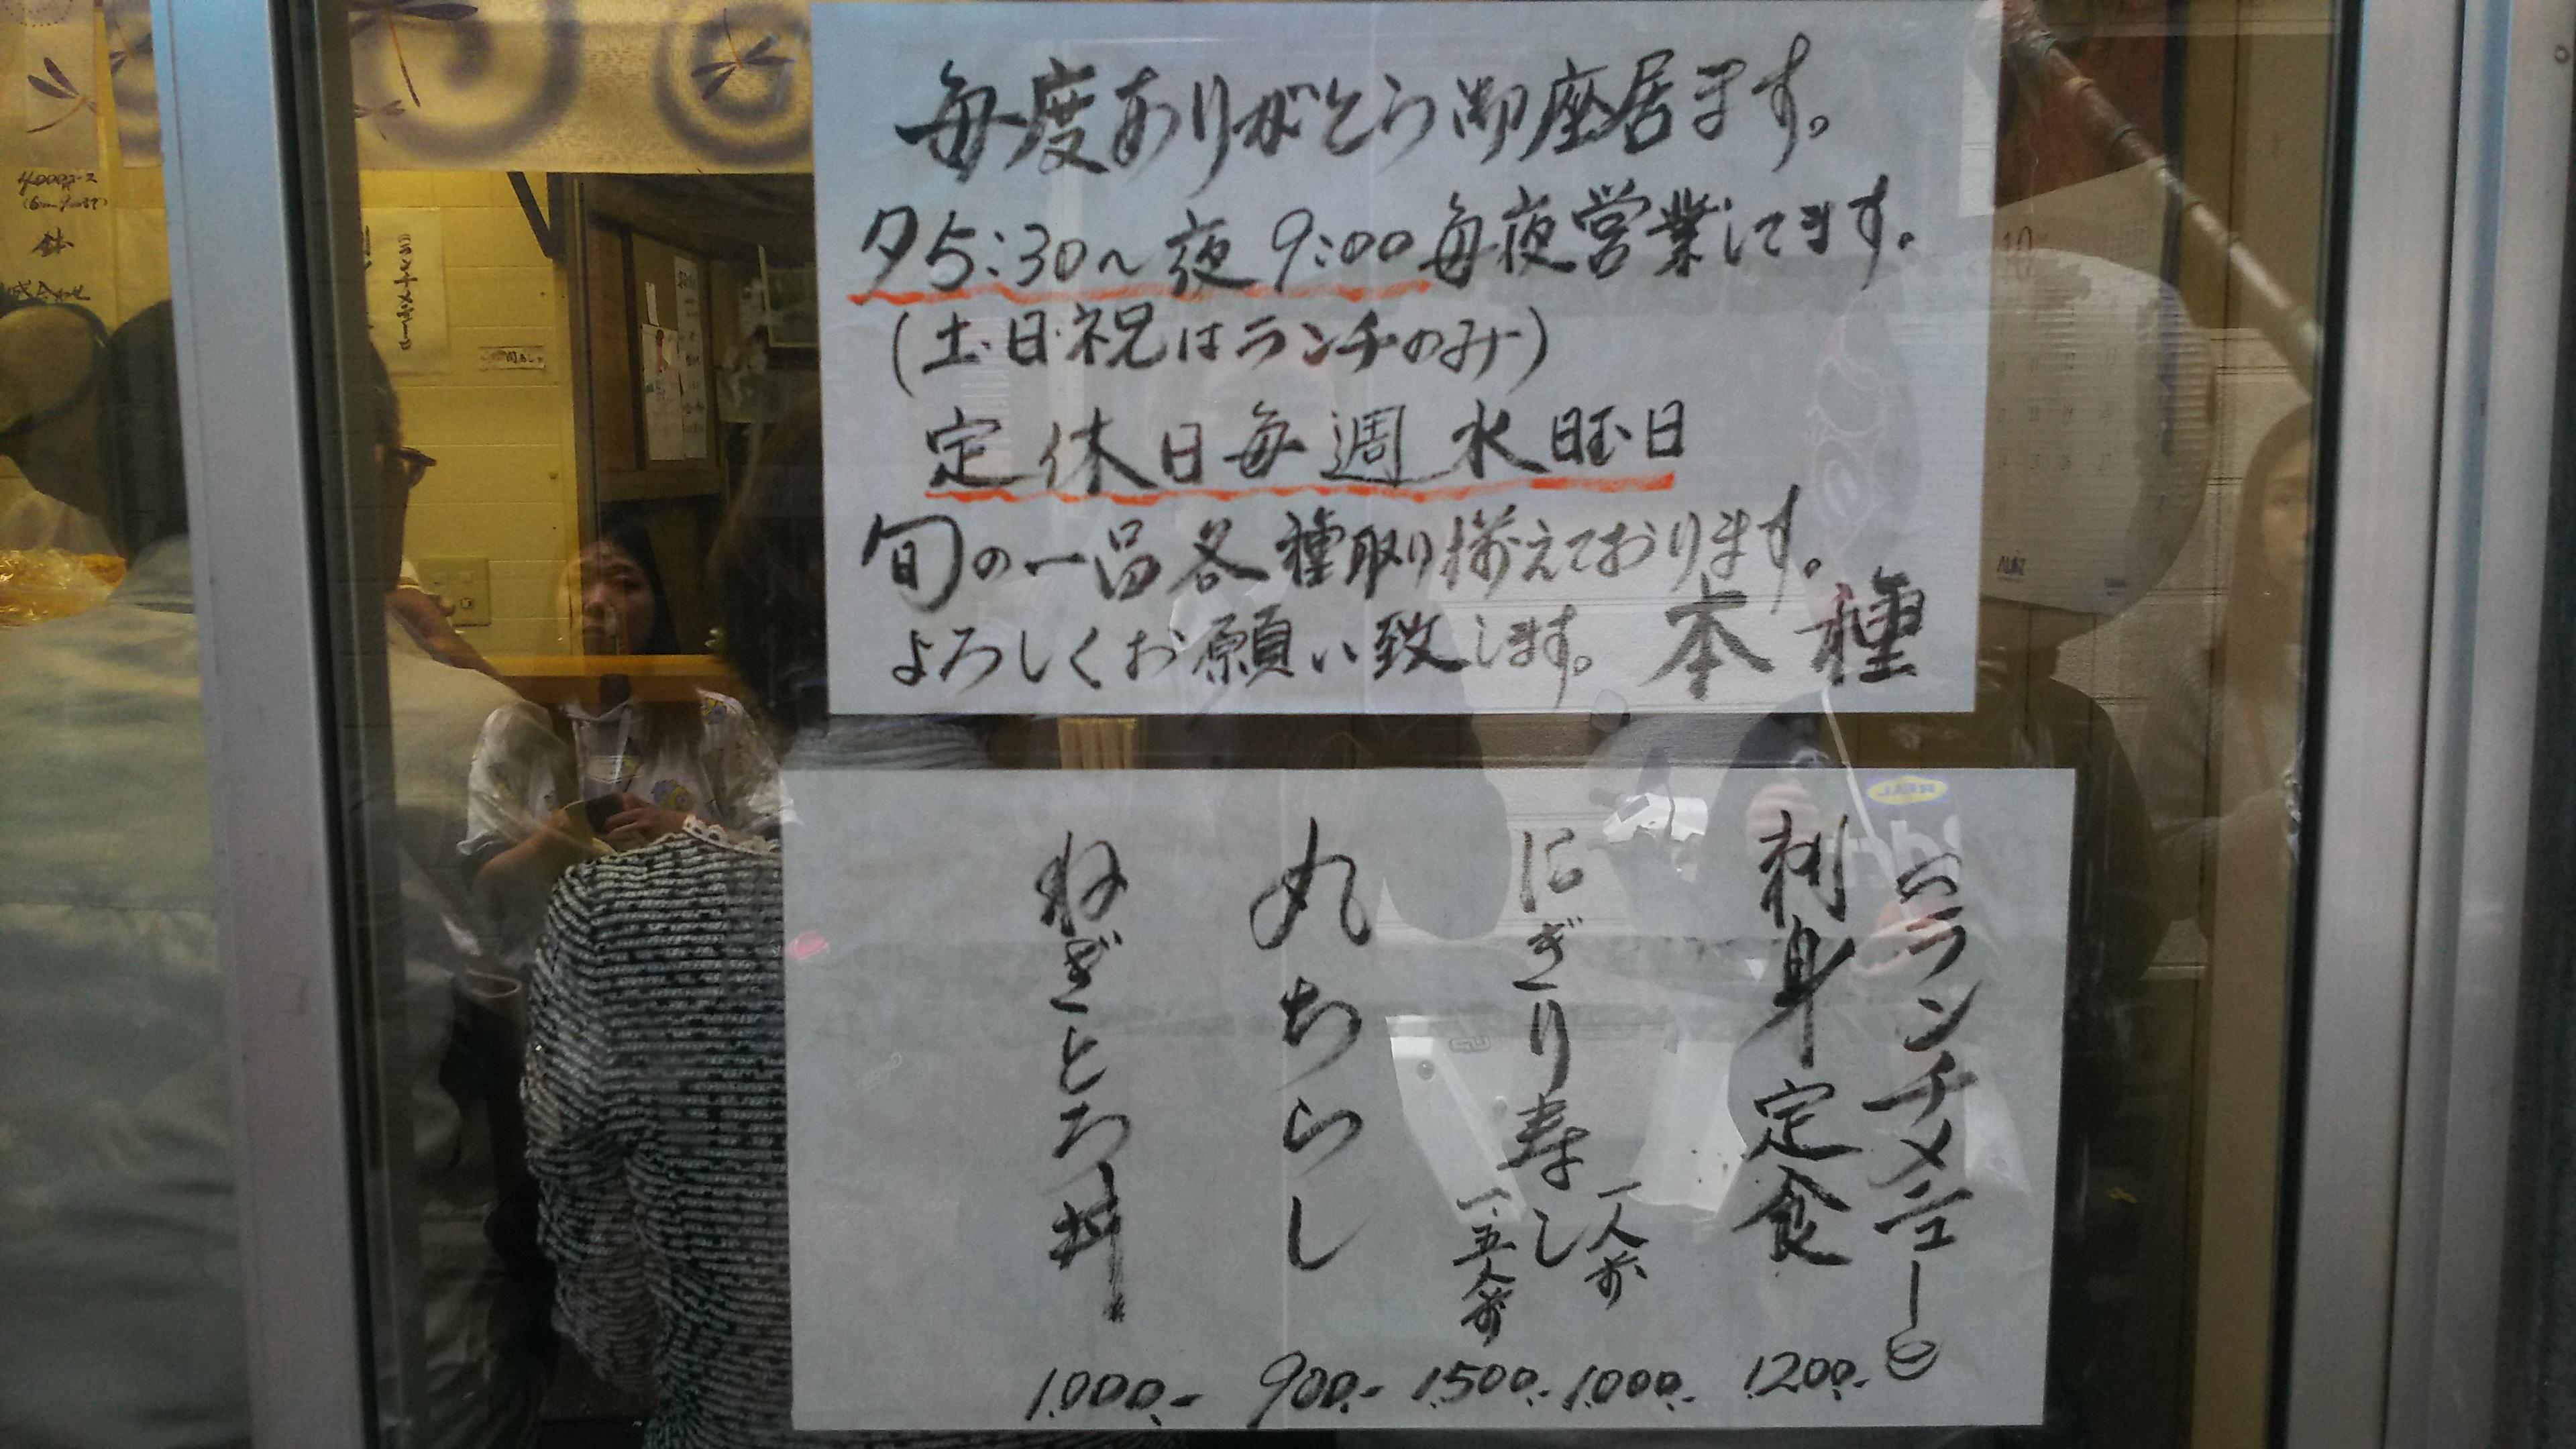 毎度ありがとう御座居ます。
夕5:30~夜9:00毎夜営業してます。
(土・日・祝はランチのみ)
定休日毎週水曜日
旬の一品各種取り揃えております。
よろしくお願い致します。 本種
ランチメニュー
刺身定食 1200.-
にぎり寿し 一人前 1000.-
一.五人前 1500.-
丸ちらし 900.-
ねぎとろ丼 1.000.-
10